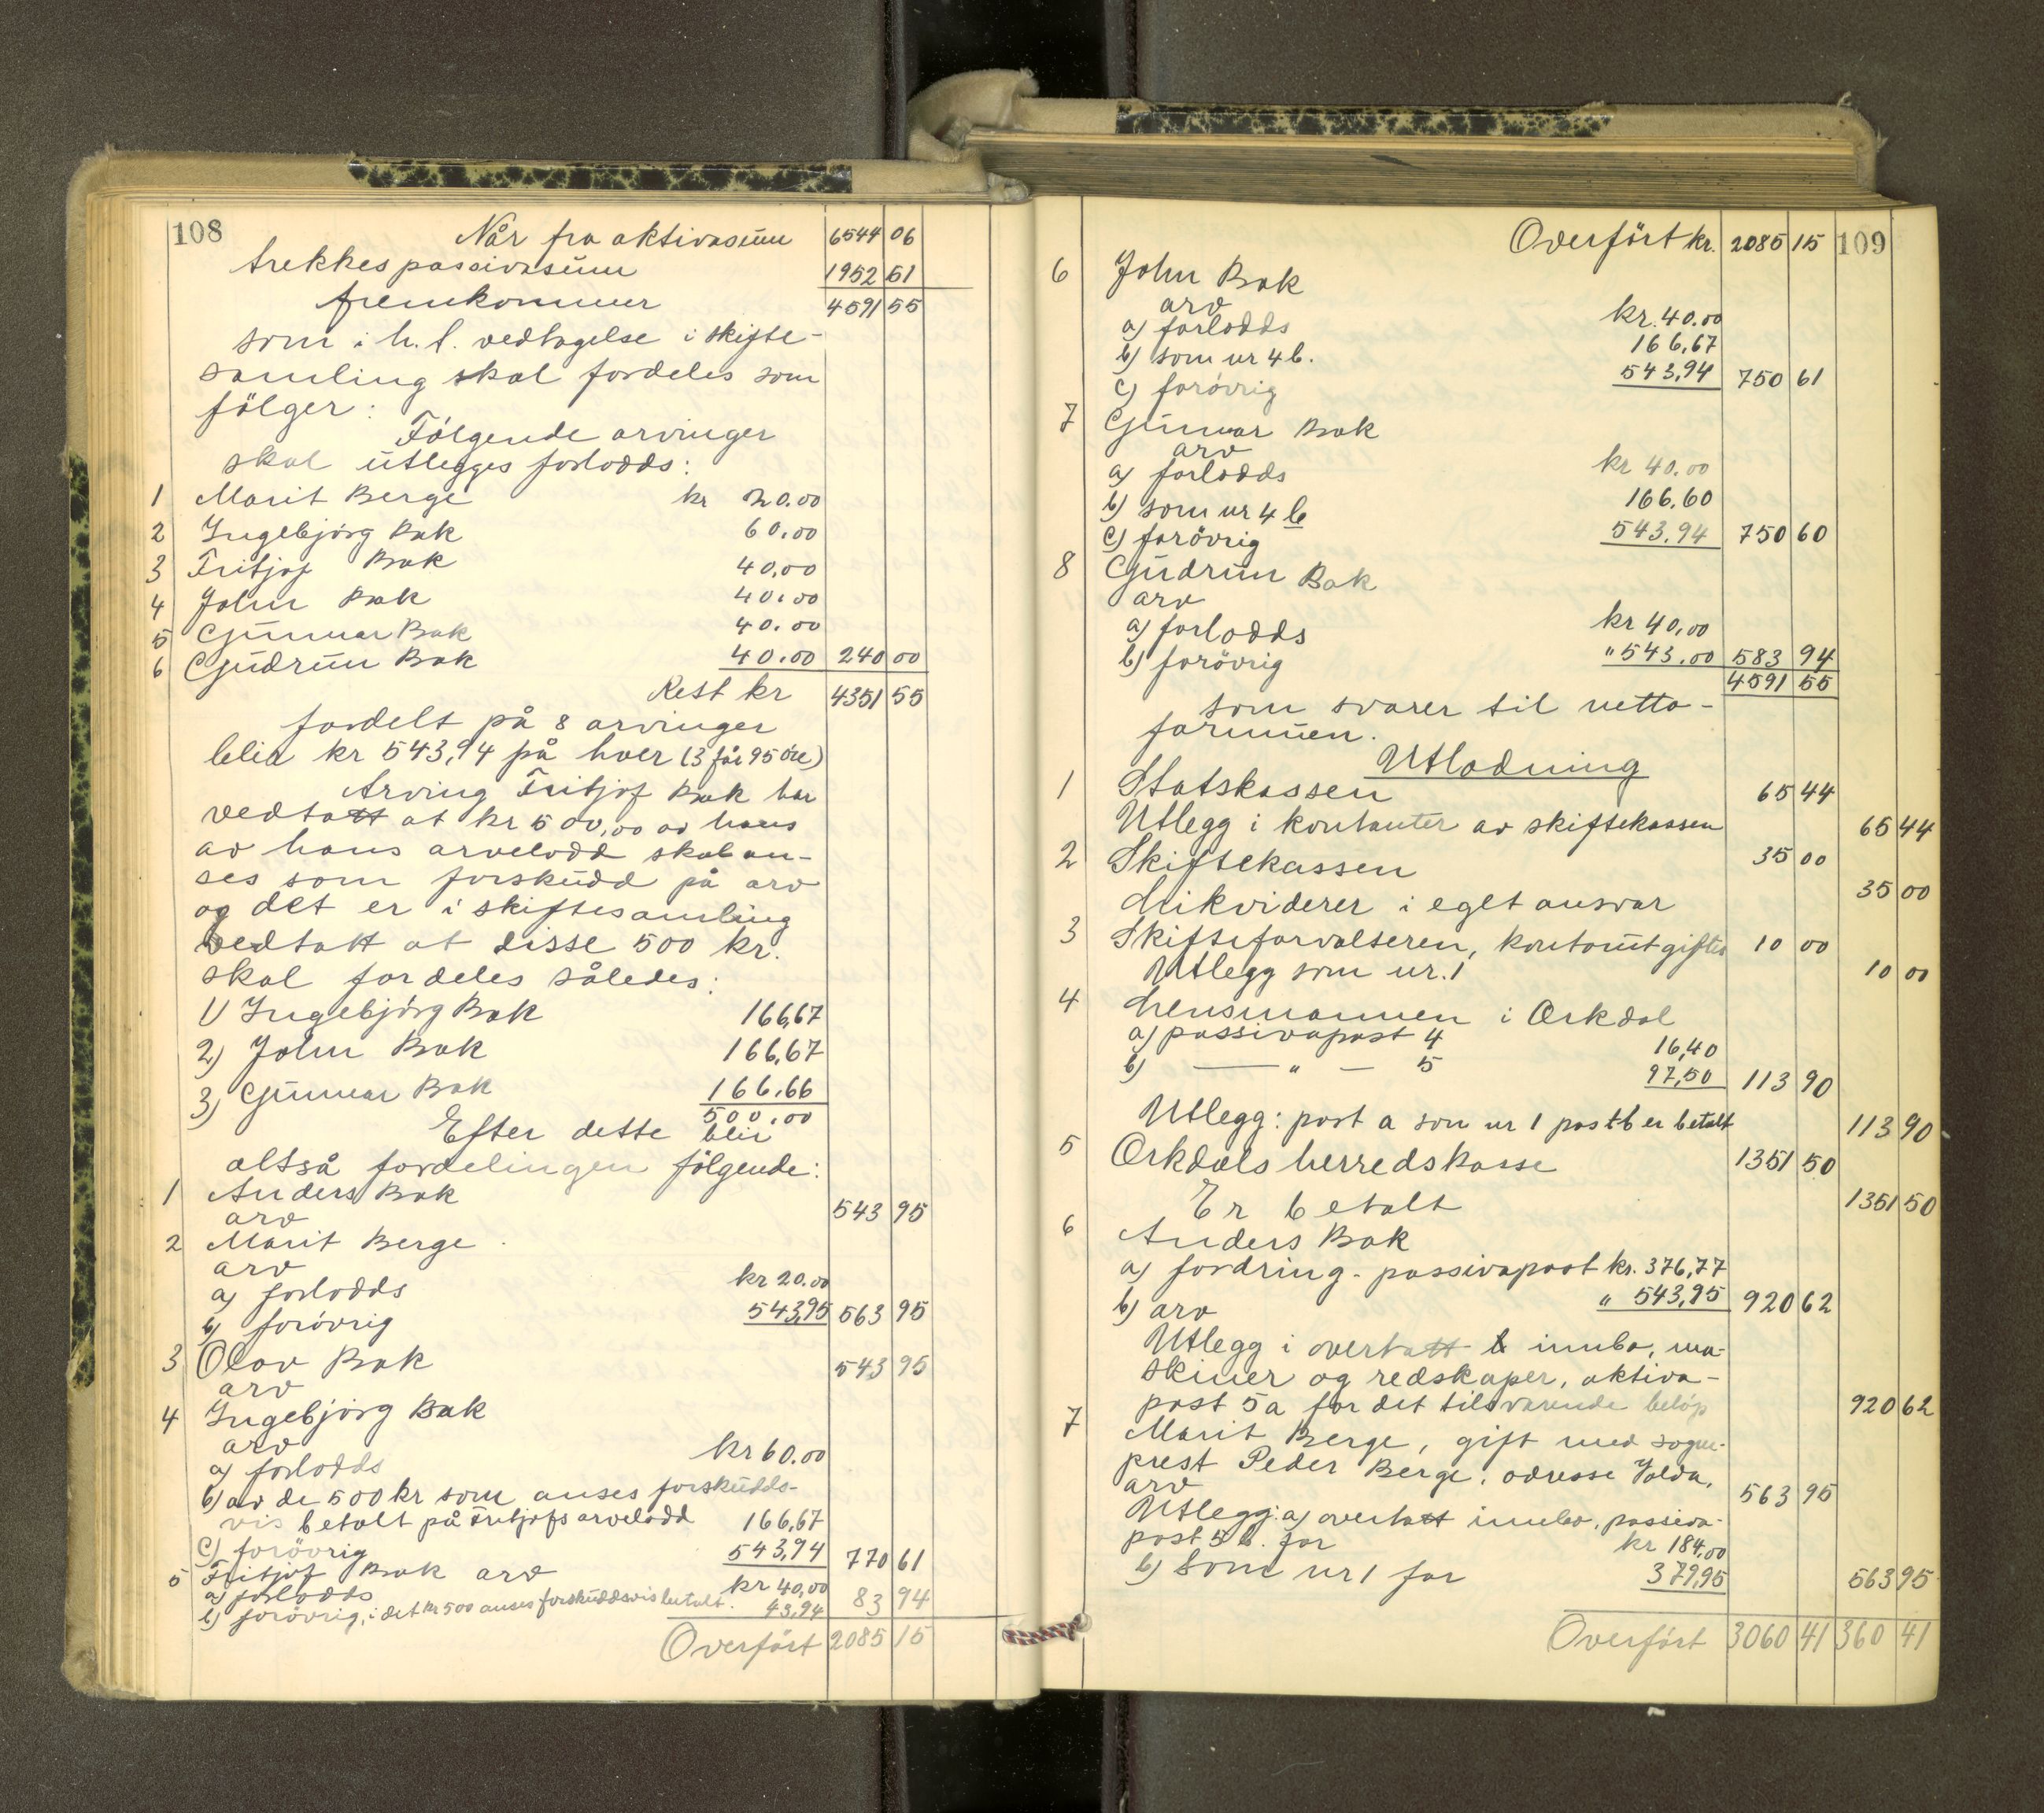 108
Når fra aktivasum 6544 06
trekkes passivasum 1952 51
fremkommer 4591 55
som i h.t. vedtagelse i skifte-
samling skal fordeles som
følger:
Følgende arvinger
skal utlegges forlodds:
1 Marit Berge kr 20.00
2 Ingebjörg Bak 60.00
3 Fritjof Bak 40,00
4 John Bak 40.00
5 Gunnar Bak 40.00
6 Gudrun Bak 40.00 240 00
Rest kr 4351 55
fordelt på 8 arvinger
blir kr 543,94 på hver (3 får 95 öre)
Arving Fritjof Bak har
vedtatt at kr 500,00 av hans
av hans arvelodd skal an-
ses som forskudd på arv
og det er i skiftesamling
vedtatt at disse 500 kr.
skal fordeles således:
1) Ingebjörg Bak 166,67
2) John Bak 166,67
3) Gunnar Bak 166.66
500.00
Efter dette blir
altså fordelingen fölgende:
1 Anders Bak
arv 543 95
2 Marit Berge
arv
a) forlodds kr 20.00
b) forövrig 543,95 563 95
3 Olav Bak
arv 543 95
4 Ingebjörg Bak
arv
a) forlodds kr 60.00
b) av de 500 kr som anses forskudds-
vis betalt på Fritjofs arvelodd 166,67
c) forövrig 543,94 770 61
5 Fritjof Bak arv
a) forlodds kr 40,00
b) forövrig, i det kr 500 anses forskuddsvis betalt. 43,94 83 94
Overfört 2085 15
Overfört kr. 2085 15 109
6 John Bak
arv
a) forlodds kr. 40.00
b) som nr 4 b. 166,67
c) forövrig 543,94 750 61
7 Gunnar Bak
arv
a) forlodds kr 40.00
b) som nr 4 b 166.60
c) forövrig 543.94 750 60
8 Gudrun Bak
arv
a) forlodds kr 40,00
b) forövrig " 543.00 583 94
4591 55
som svarer til netto-
formuen.
Utlodning
1 Statskassen 65 44
Utlegg i kontanter av skiftekassen 65 44
2 Skiftekassen 35 00
Likviderer i eget ansvar 35 00
3 Skifteforvalteren, kontorutgifter 10 00
Utlegg som nr. 1 10 00
4 Lensmannen i Orkdal
a) passivapost 4 16,40
b) — " — 5 97,50 113 90
Utlegg: post a som nr 1 post b er betalt 113 90
5 Orkdals herredskasse 1351 50
Er betalt 1351 50
6 Anders Bak
a) fordring - passivapost kr. 376,77
b) arv " 543,95 920 62
Utlegg i overtatt innbo, ma-
skiner og redskaper, aktiva-
post 5 a for det tilsvarende belöp 920 62
7 Marit Berge, gift med sogne-
prest Peder Berge, adresse Volda,
arv 563 95
Utlegg: a) overtatt innbo, passiva-
post 5 b. for kr 184,00
b) Som nr 1 for 379,95 563 95
Overfört 3060 41 360 41